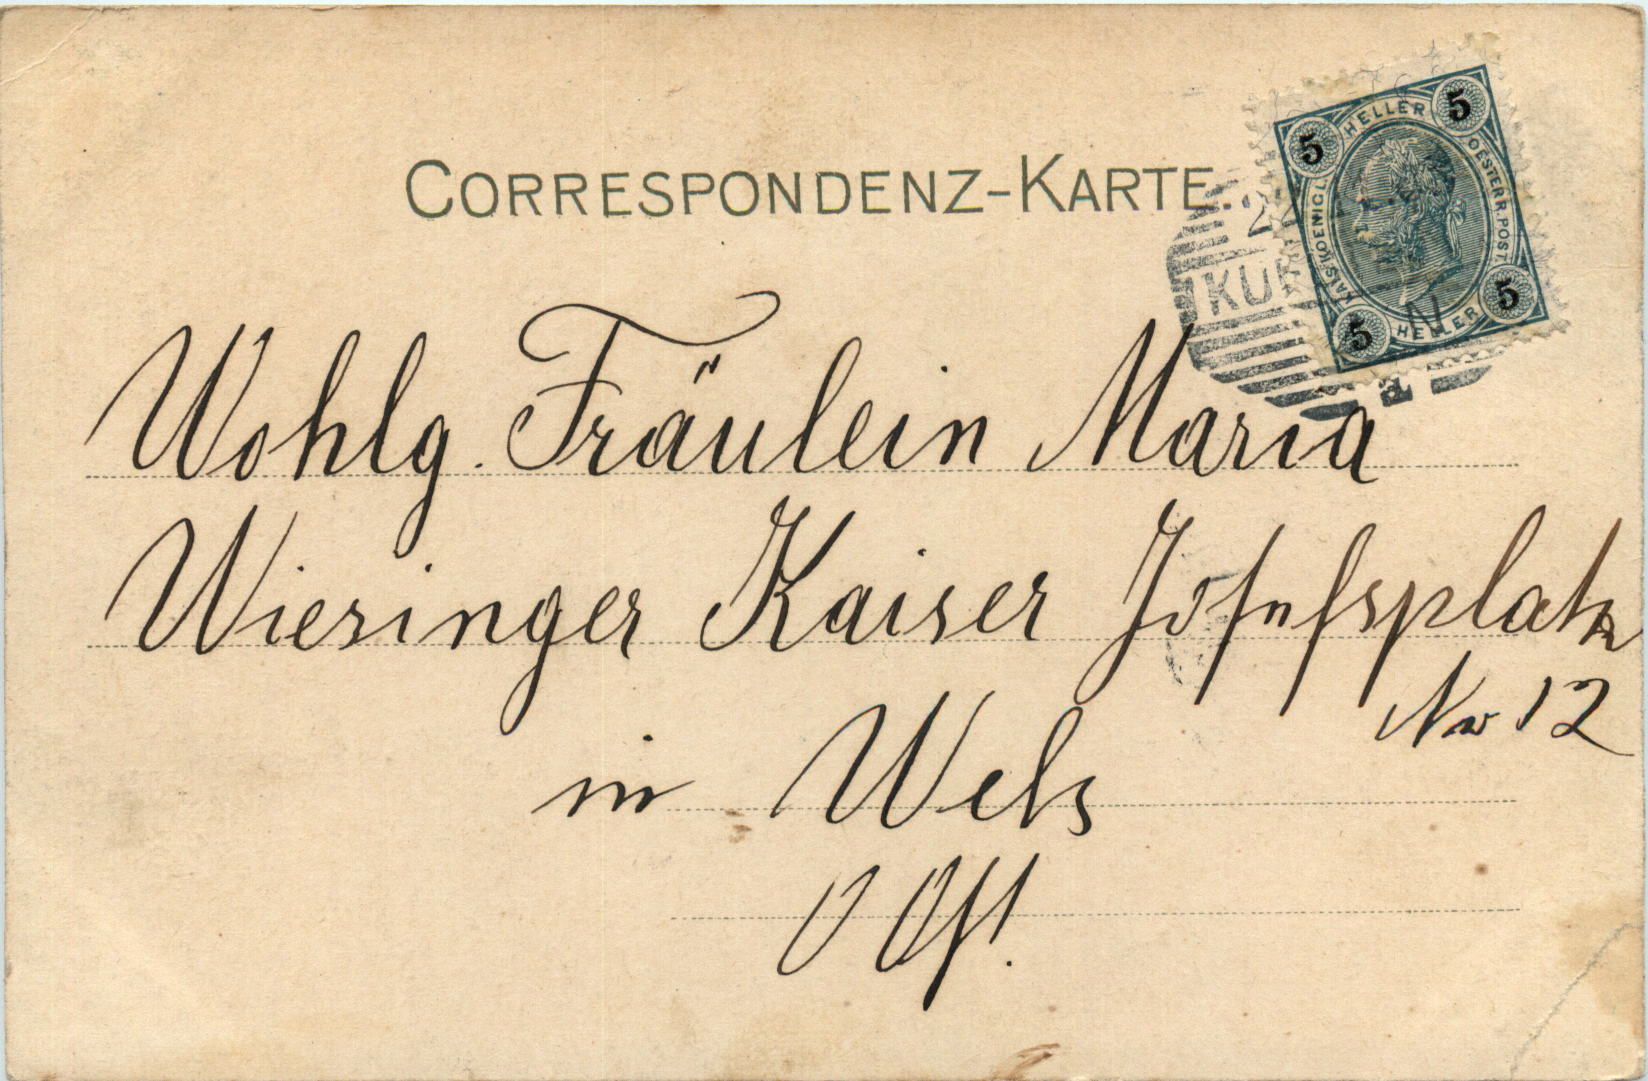 CORRESPONDENZ-KARTE.
5 HELLER 5
KAIS. KOENIGL. OESTERR. POST.
5 HELLER 5
Wohlg. Fräulein Maria
Wiesinger Kaiser Josefsplatz
No 12
in Wels
O Öst.